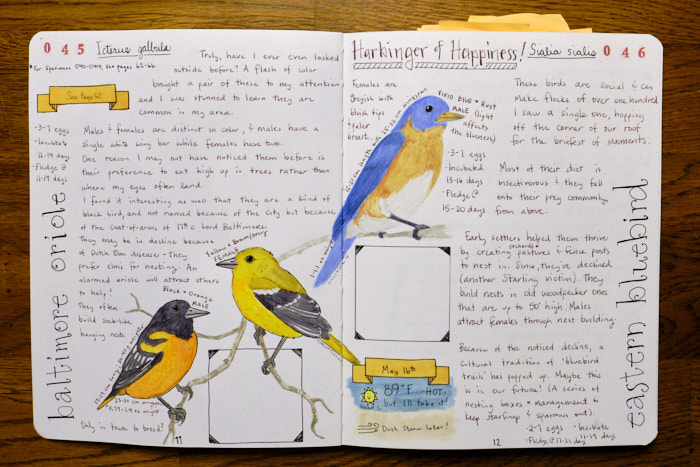 045 Icterus galbula
*For Specimens 040-044, see pages 62-66.
See Page 67
Truly, have I ever even looked
outside before? A flash of color
brought a pair of these to my attention
and I was stunned to learn they are
common in my area.
Males & females are distinct in color, & males have a
single white wing bar while females have two.
One reason I may not have noticed them before is
their preference to eat high up in trees rather than
where my eyes often land.
I found it interesting as well that they are a kind of
black bird, and not named because of the City but because
of the coat-of-arms of 17th c Lord Baltimore.
They may be in decline because
of Dutch Elm disease - They
prefer elms for nesting. An
alarmed oriole will attract others
to help!
They often
build sock-like,
hanging nests.
•3-7 eggs
•Incubate
12-14 days
•Fledge @
11-14 days
baltimore oriole
Yellow & Brown/Gray
FEMALE
Black & Orange
MALE
23-30 cm wingspan
Only in town to breed!
11
Harbinger of Happiness! Sialia sialis 046
Females are
greyish with
bluish tips
& paler
breast.
VIVID BLUE & RUST
MALE (light
affects
the blueness)
•3-7 eggs
•Incubated
13-16 days
•Fledge @
15-20 days
These birds are social & can
make flocks of over one hundred.
I saw a single one, hopping
off the corner of our roof
for the briefest of moments.
Most of their diet is
insectivorous & they fall
onto their prey commonly
from above.
Early settlers helped them thrive
orchards &
by creating pastures & fence posts
to nest in. Since, they've declined
(another Starling victim). They
build nests in old woodpecker ones
that are up to 50' high. Males
attract females through nest building.
Because of the noticed decline, a
cultural tradition of "bluebird
trails" has popped up. Maybe this
is in our future! (A series of
nesting boxes & management to
keep starlings & sparrows out).
•2-7 eggs •Incubate
•Fledge @ 17-21 days 11-19 days
eastern bluebird
May 16th
89°F - HOT,
but I'll take it!
Dust Storm later!
12